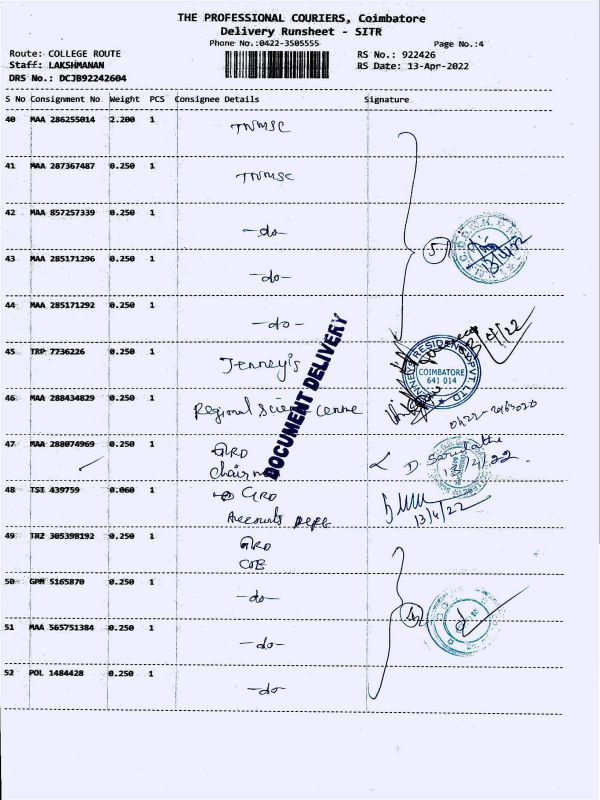 THE PROFESSIONAL COURIERS, Coimbatore
Delivery Runsheet - SITR
Phone No.:0422-3505555 Page No.:4
Route: COLLEGE ROUTE RS No.: 922426
Staff: LAKSHMANAN RS Date: 13-Apr-2022
DRS No.: DCJB92242604
S No Consignment No Weight PCS Consignee Details Signature
40 MAA 286255014 2.200 1 TNMSC
41 MAA 287367487 0.250 1 TNMSC
42 MAA 857257339 0.250 1 -do-
43 MAA 285171296 0.250 1 -do-
44 MAA 285171292 0.250 1 -do-
45 TRP 7736226 0.250 1 Jenney's
46 MAA 288434829 0.250 1 Regional Science Centre
47 MAA 288074969 0.250 1 GRD
Chairman
48 TSI 439759 0.060 1 GRD
Accounts Dept
49 TRZ 305398192 0.250 1 GRD
COE
50 GPM 5165870 0.250 1 -do-
51 MAA 565751384 0.250 1 -do-
52 POL 1484428 0.250 1 -do-
DOCUMENT DELIVERY
13/4/22
COIMBATORE
641 014
13/4/22